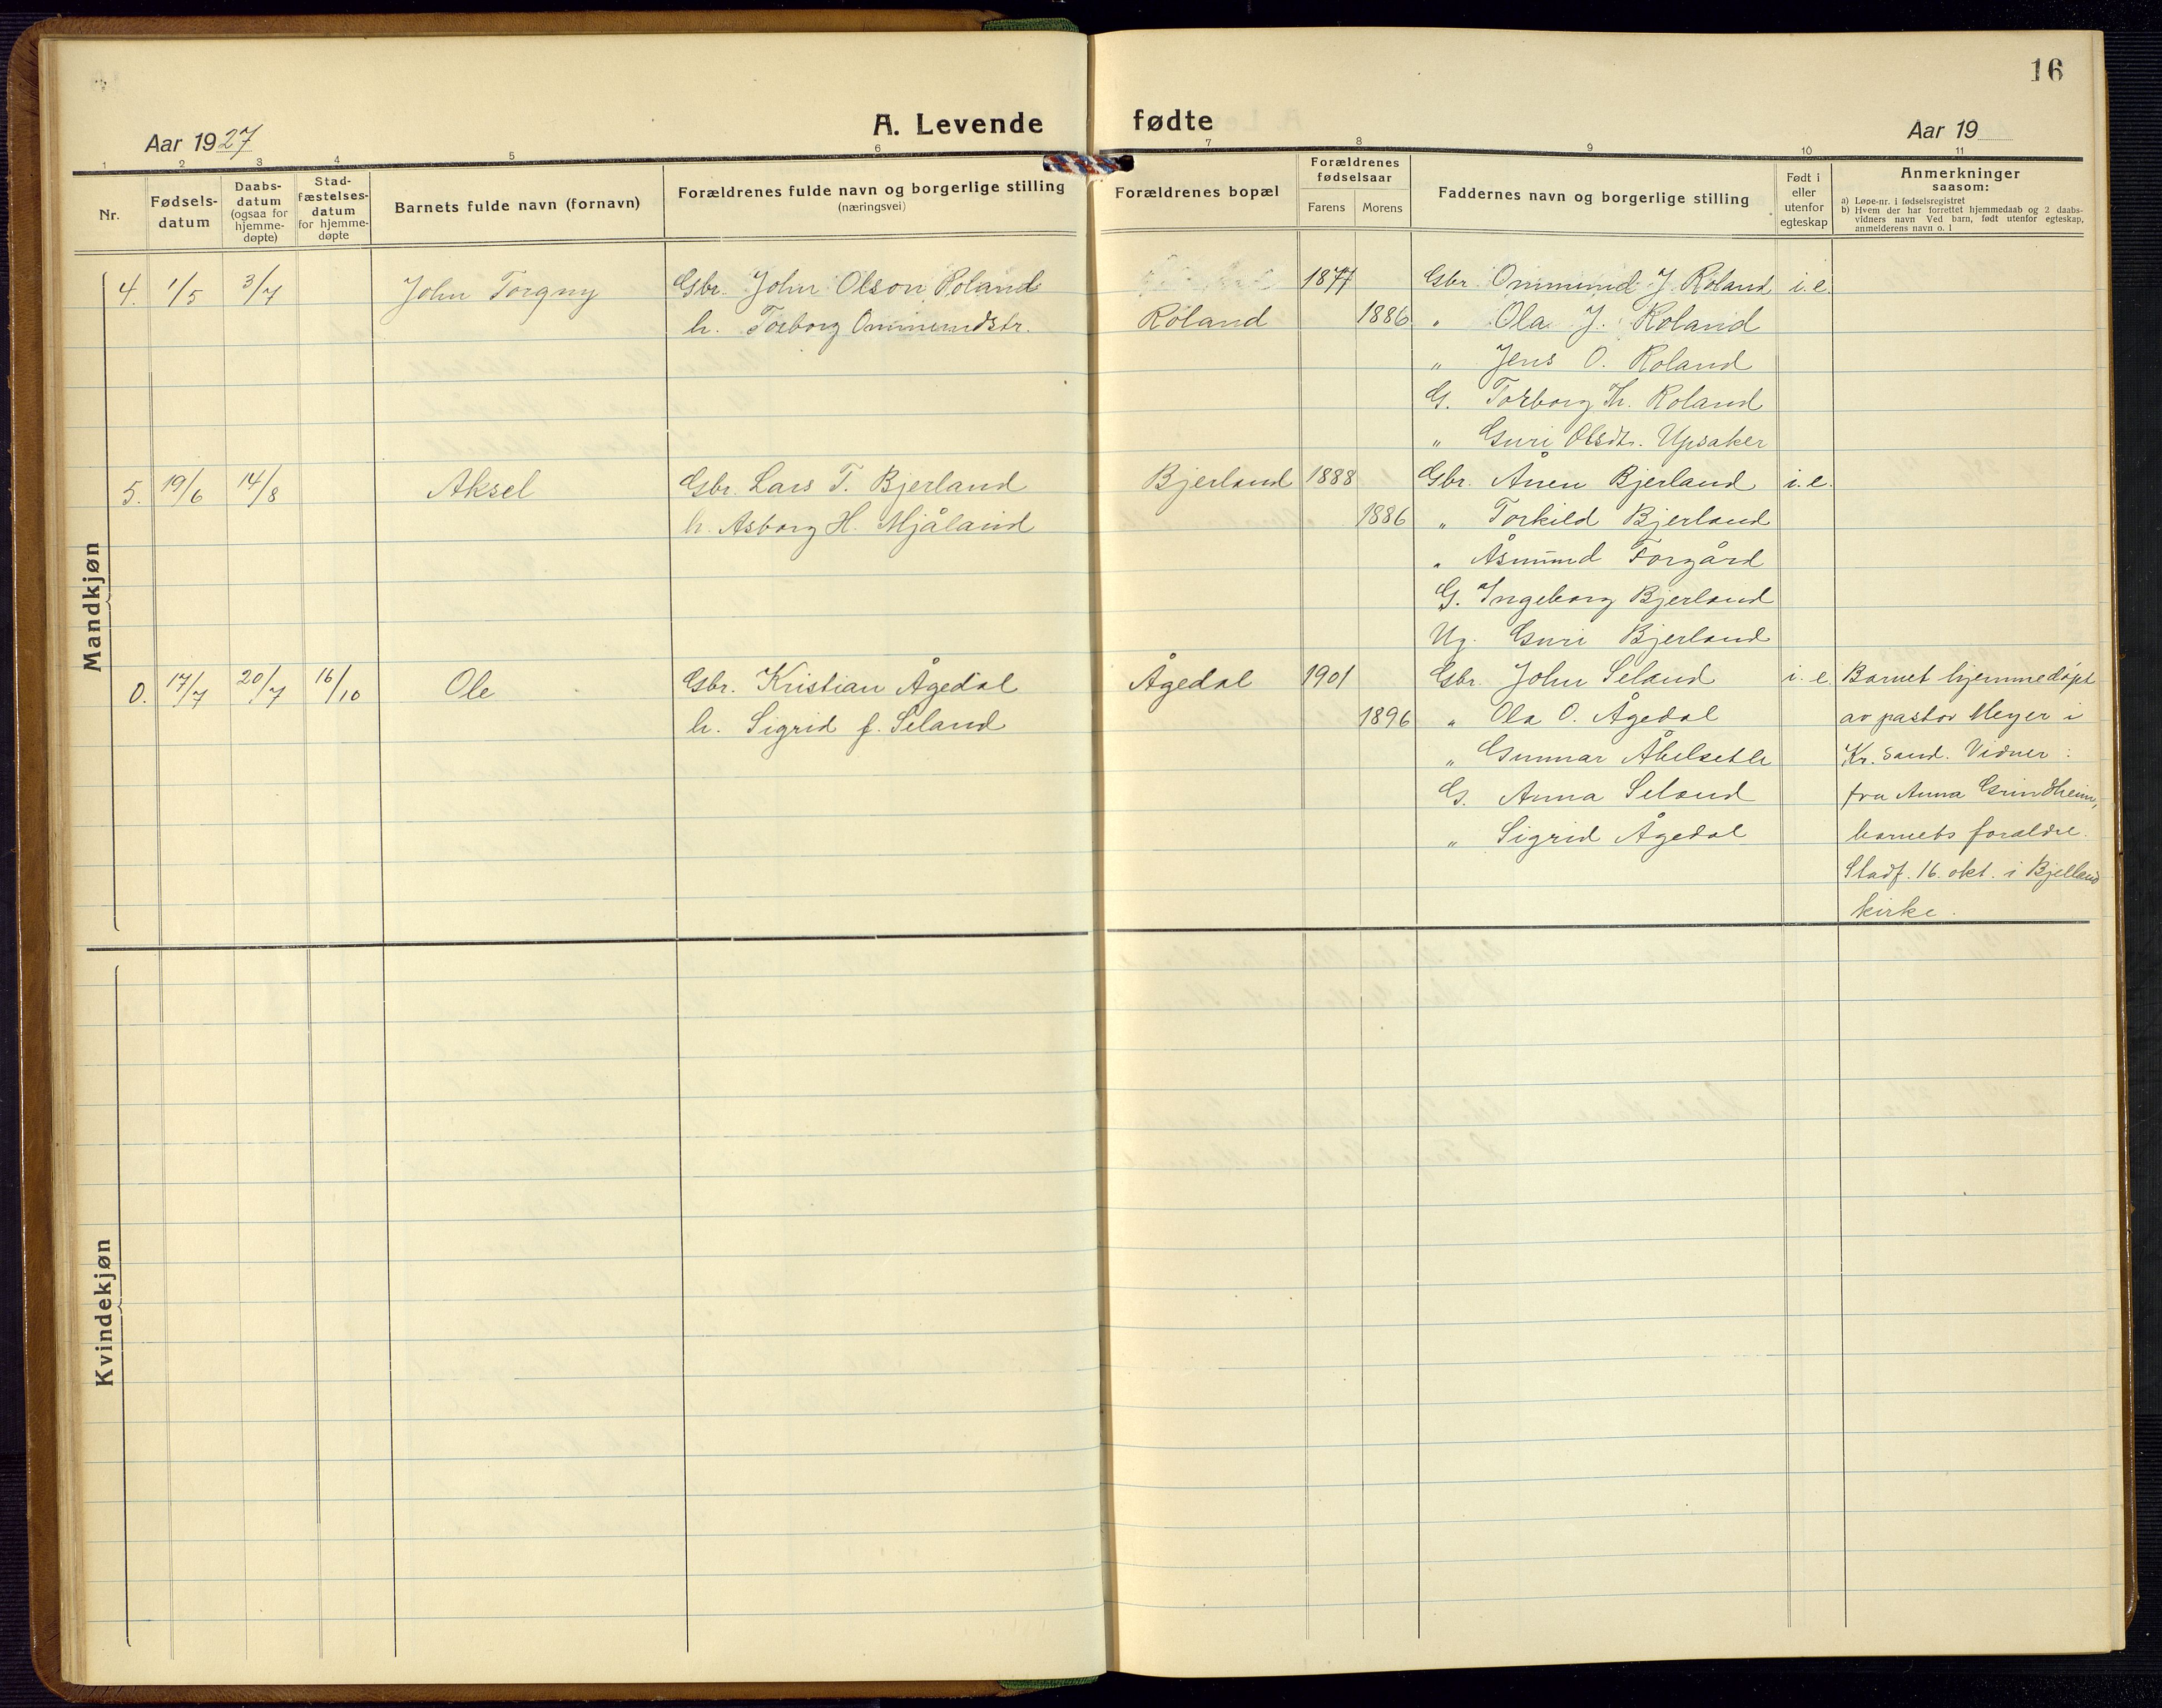 16
A. Levende fødte
Aar 1927
Aar 19
1 2 3 4 5 6 7 8 9 10 11
Nr.
Fødsels-
datum
Daabs-
datum
(ogsaa for
hjemme-
døpte)
Stad-
fæstelses-
datum
for hjemme-
døpte
Barnets fulde navn (fornavn)
Forældrenes fulde navn og borgerlige stilling
(næringsvei)
Forældrenes bopæl
Forældrenes
fødselsaar
Farens Morens
Faddernes navn og borgerlige stilling
Født i
eller
utenfor
egteskap
Anmerkninger
saasom:
a) Løpe-nr. i fødselsregistret
b) Hvem der har forrettet hjemmedaab og 2 daabs-
vidners navn Ved barn, født utenfor egteskap,
anmelderens navn o. l
Mandkjøn
4. 1/5 3/7 John Torgny Gbr. John Olson Roland 1877 Gbr. Ommund J. Roland i. e.
h. Torborg Ommundsdtr. Roland 1886 " Ola J. Roland
" Jens O. Roland
G. Torborg Th. Roland
" Guri Olsdtr. Upsaker
5. 19/6 14/8 Aksel Gbr. Lars T. Bjerland Bjerland 1888 Gbr. Ånen Bjerland i. e.
h. Asborg H. Mjåland 1886 " Torkild Bjerland
" Åsmund Forgård
G. Ingeborg Bjerland
Ug. Guri Bjerland
0. 17/7 20/7 16/10 Ole Gbr. Kristian Ågedal Ågedal 1901 Gbr. John Seland i. e. Barnet hjemmedöpt
h. Sigrid f. Seland 1896 " Ola O. Ågedal av pastor Meyer i
" Gunnar Åbelsetle Kr. sand. Vidner:
G. Anna Seland fru Anna Grindheim,
" Sigrid Ågedal barnets foraldre.
Stadf. 16. okt. i Bjelland
kirke.
Kvindekjøn